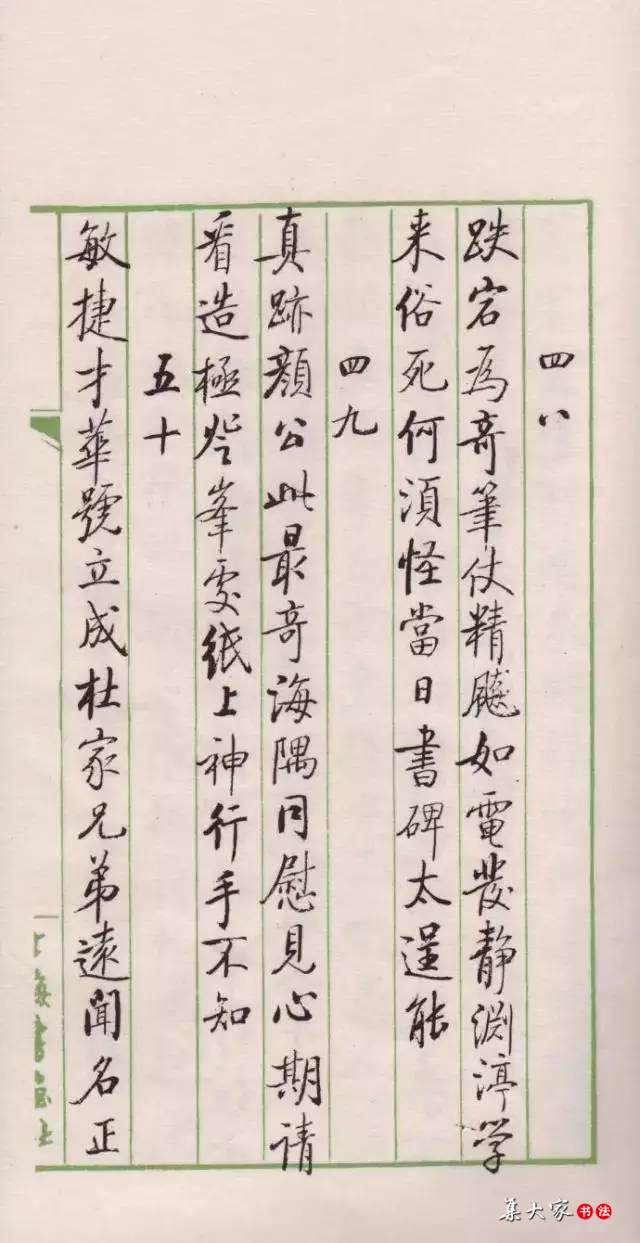 四八
跌宕為奇筆仗精飈如電發静淵渟学
来俗死何須怪當日書碑太逞能
四九
真跡顔公此最奇海隅同慰見心期请
看造極登峯處纸上神行手不知
五十
敏捷才華號立成杜家兄弟遠聞名正
上海書畫社
集大家书法